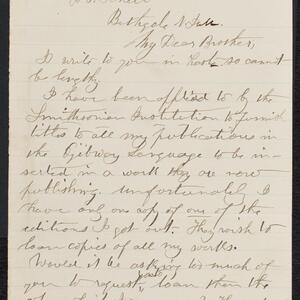 Bethgele N Falls.
My Dear Brother,
I write to you in haste so cannot
be lengthy
I have been applied to by the
Smithsonian Institution to furnish
titles to all my publications in
the Ojibway Language to be in-
serted in a work they are now
publishing. Unfortunately I
have only one copy of one of the
editions I got out. They wish to
loan copies of all my works.
Would it be asking too much of
you to request loan them the